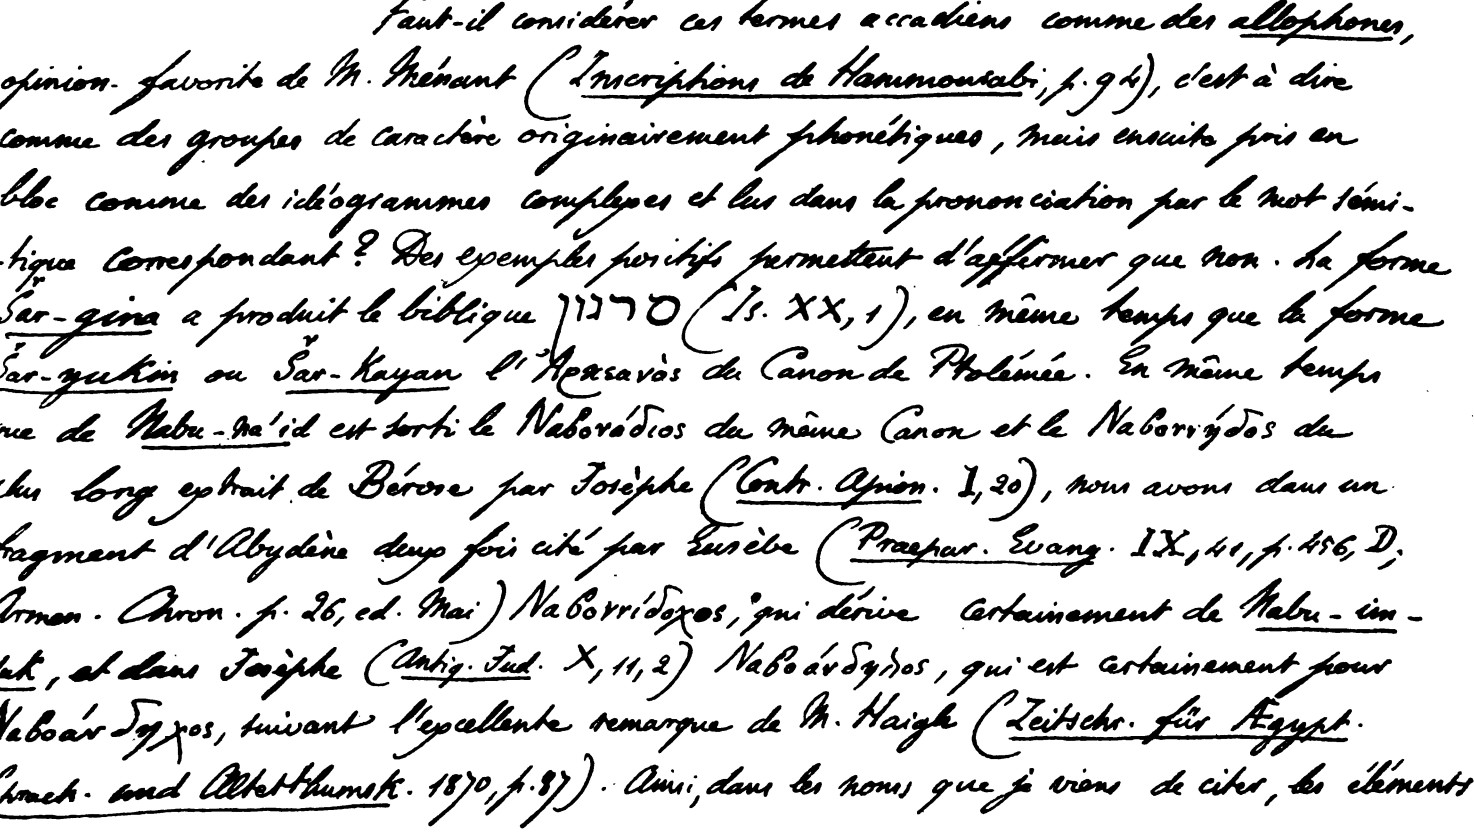 Faut-il considérer ces termes accadiens comme des allophones,
opinion favorite de M. Ménant (Inscriptions de Hammourabi, p. 94), c'est à dire
comme des groupes de caractère originairement phonétiques, mais ensuite pris en
bloc comme des idéogrammes complexes et lus dans la prononciation par le mot sémi-
-tique correspondant? Des exemples positifs permettent d'affermer que non. La forme
Šar-gina a produit le biblique סרגון (Is. XX, 1), en même temps que la forme
Šar-yukin ou Šar-Kayan l'Ἀρκεανὸς du Canon de Ptolémée. En même temps
que de Nabu-na'id est sorti le Ναβονάδιος du même Canon et le Ναβοννήδος du
plus long extrait de Bérose par Josèphe (Contr. Apion. I, 20), nous avons dans un
fragment d'Abydène deux fois cité par Eusèbe (Praepar. Evang. IX, 41, p. 456, D;
Armen. Chron. p. 26, ed. Mai) Ναβοννίδοχος, qui dérive certainement de Nabu-im-
tuk, et dans Josèphe (Antiq. Jud. X, 11, 2) Ναβοάνδηλος, qui est certainement pour
Ναβοάνδηχος, suivant l'excellente remarque de M. Haigh (Zeitschr. für Ægypt.
Sprach. und Altetthumsk. 1870, p. 87). Ainsi, dans les noms que je viens de citer, les éléments